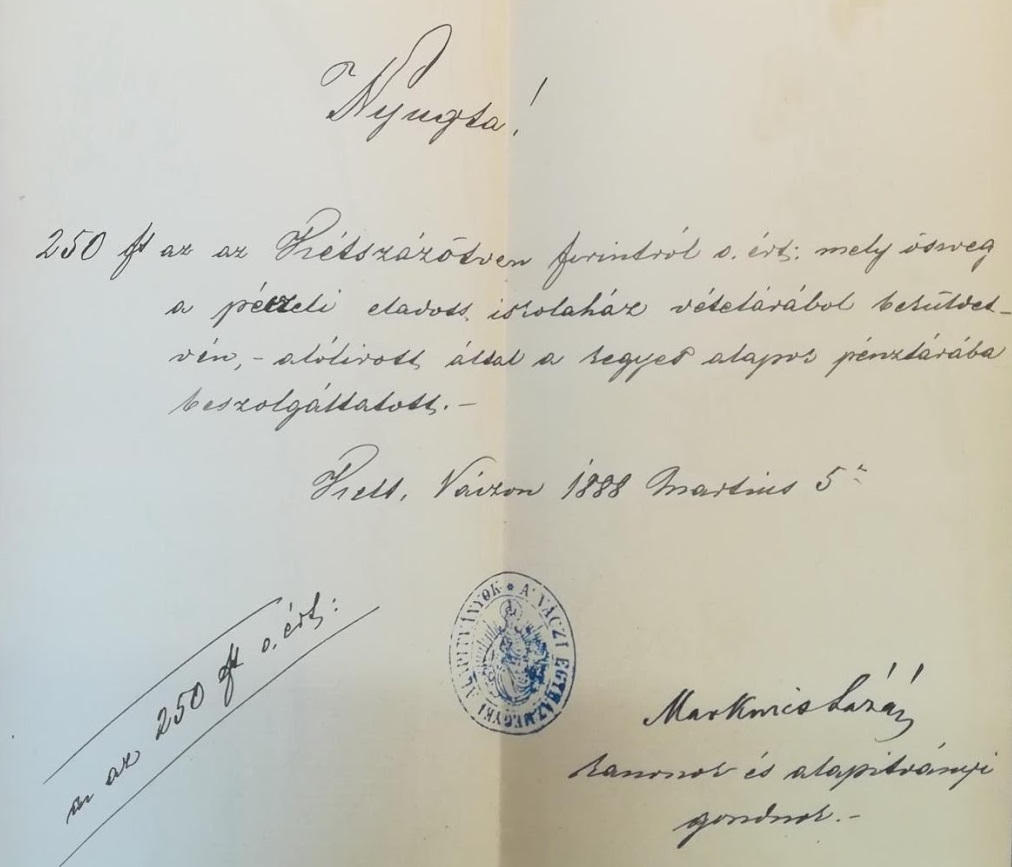 Nyugta!
250 ft az az Kétszázötven forintról o. ért: mely össveg
a péczeli eladott iskolaház vételárából befizettet-
vén, – alólirott által a kegyes alapok pénztárába
beszolgáltatott. –
Kelt, Váczon 1888 Martius 5
az az 250 ft o. ért:
A VÁCZI EGYHÁZMEGYEI ALAPITVÁNYOK *
Markovics Lázár
kanonok és alapitványi
gondnok. –